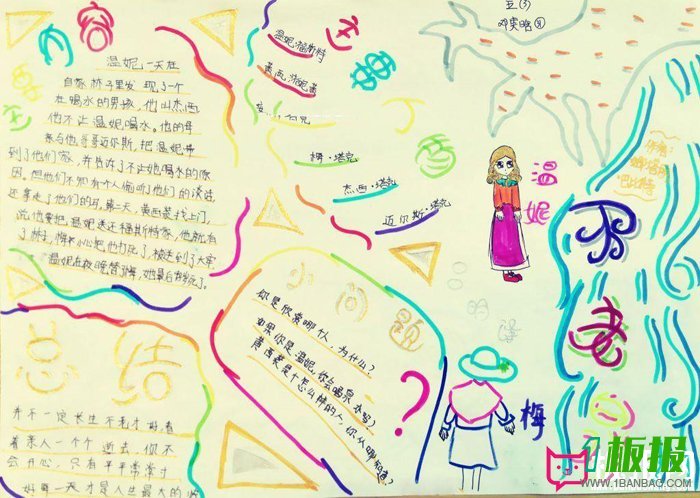 温妮一天在
自家林子里发现了一个
在喝水的男孩，他叫杰西
他不让温妮喝水。他的母
亲与他哥哥迈尔斯，把温妮带
到了他们家，并告诉了不让她喝水的原
因，但他们不知有个人偷听他们的谈话
还拿走了他们的马，第二天，黄西装找上门，
说他要把温妮送还福斯特家，他就有
了林子，梅不小心把他打死了，被送到了大牢
温妮在夜晚替了梅，她最后
总结
并不一定长生不老才好，看
着亲人一个个逝去，你不
会开心，只有平平常常过
好每一天才是人生最大的
温妮·福斯特
黄西
梅·塔克
杰西·塔克
迈尔斯·塔克
小问题
你是欣赏哪个人，为什么？
如果你是温妮，你会喝泉水吗？
黄西装是个怎么样的人，你从哪知道？
?
五(3)
温妮
梅
作者：
娜塔莉
巴比特
不老
板报
WWW.1BANBAO.COM